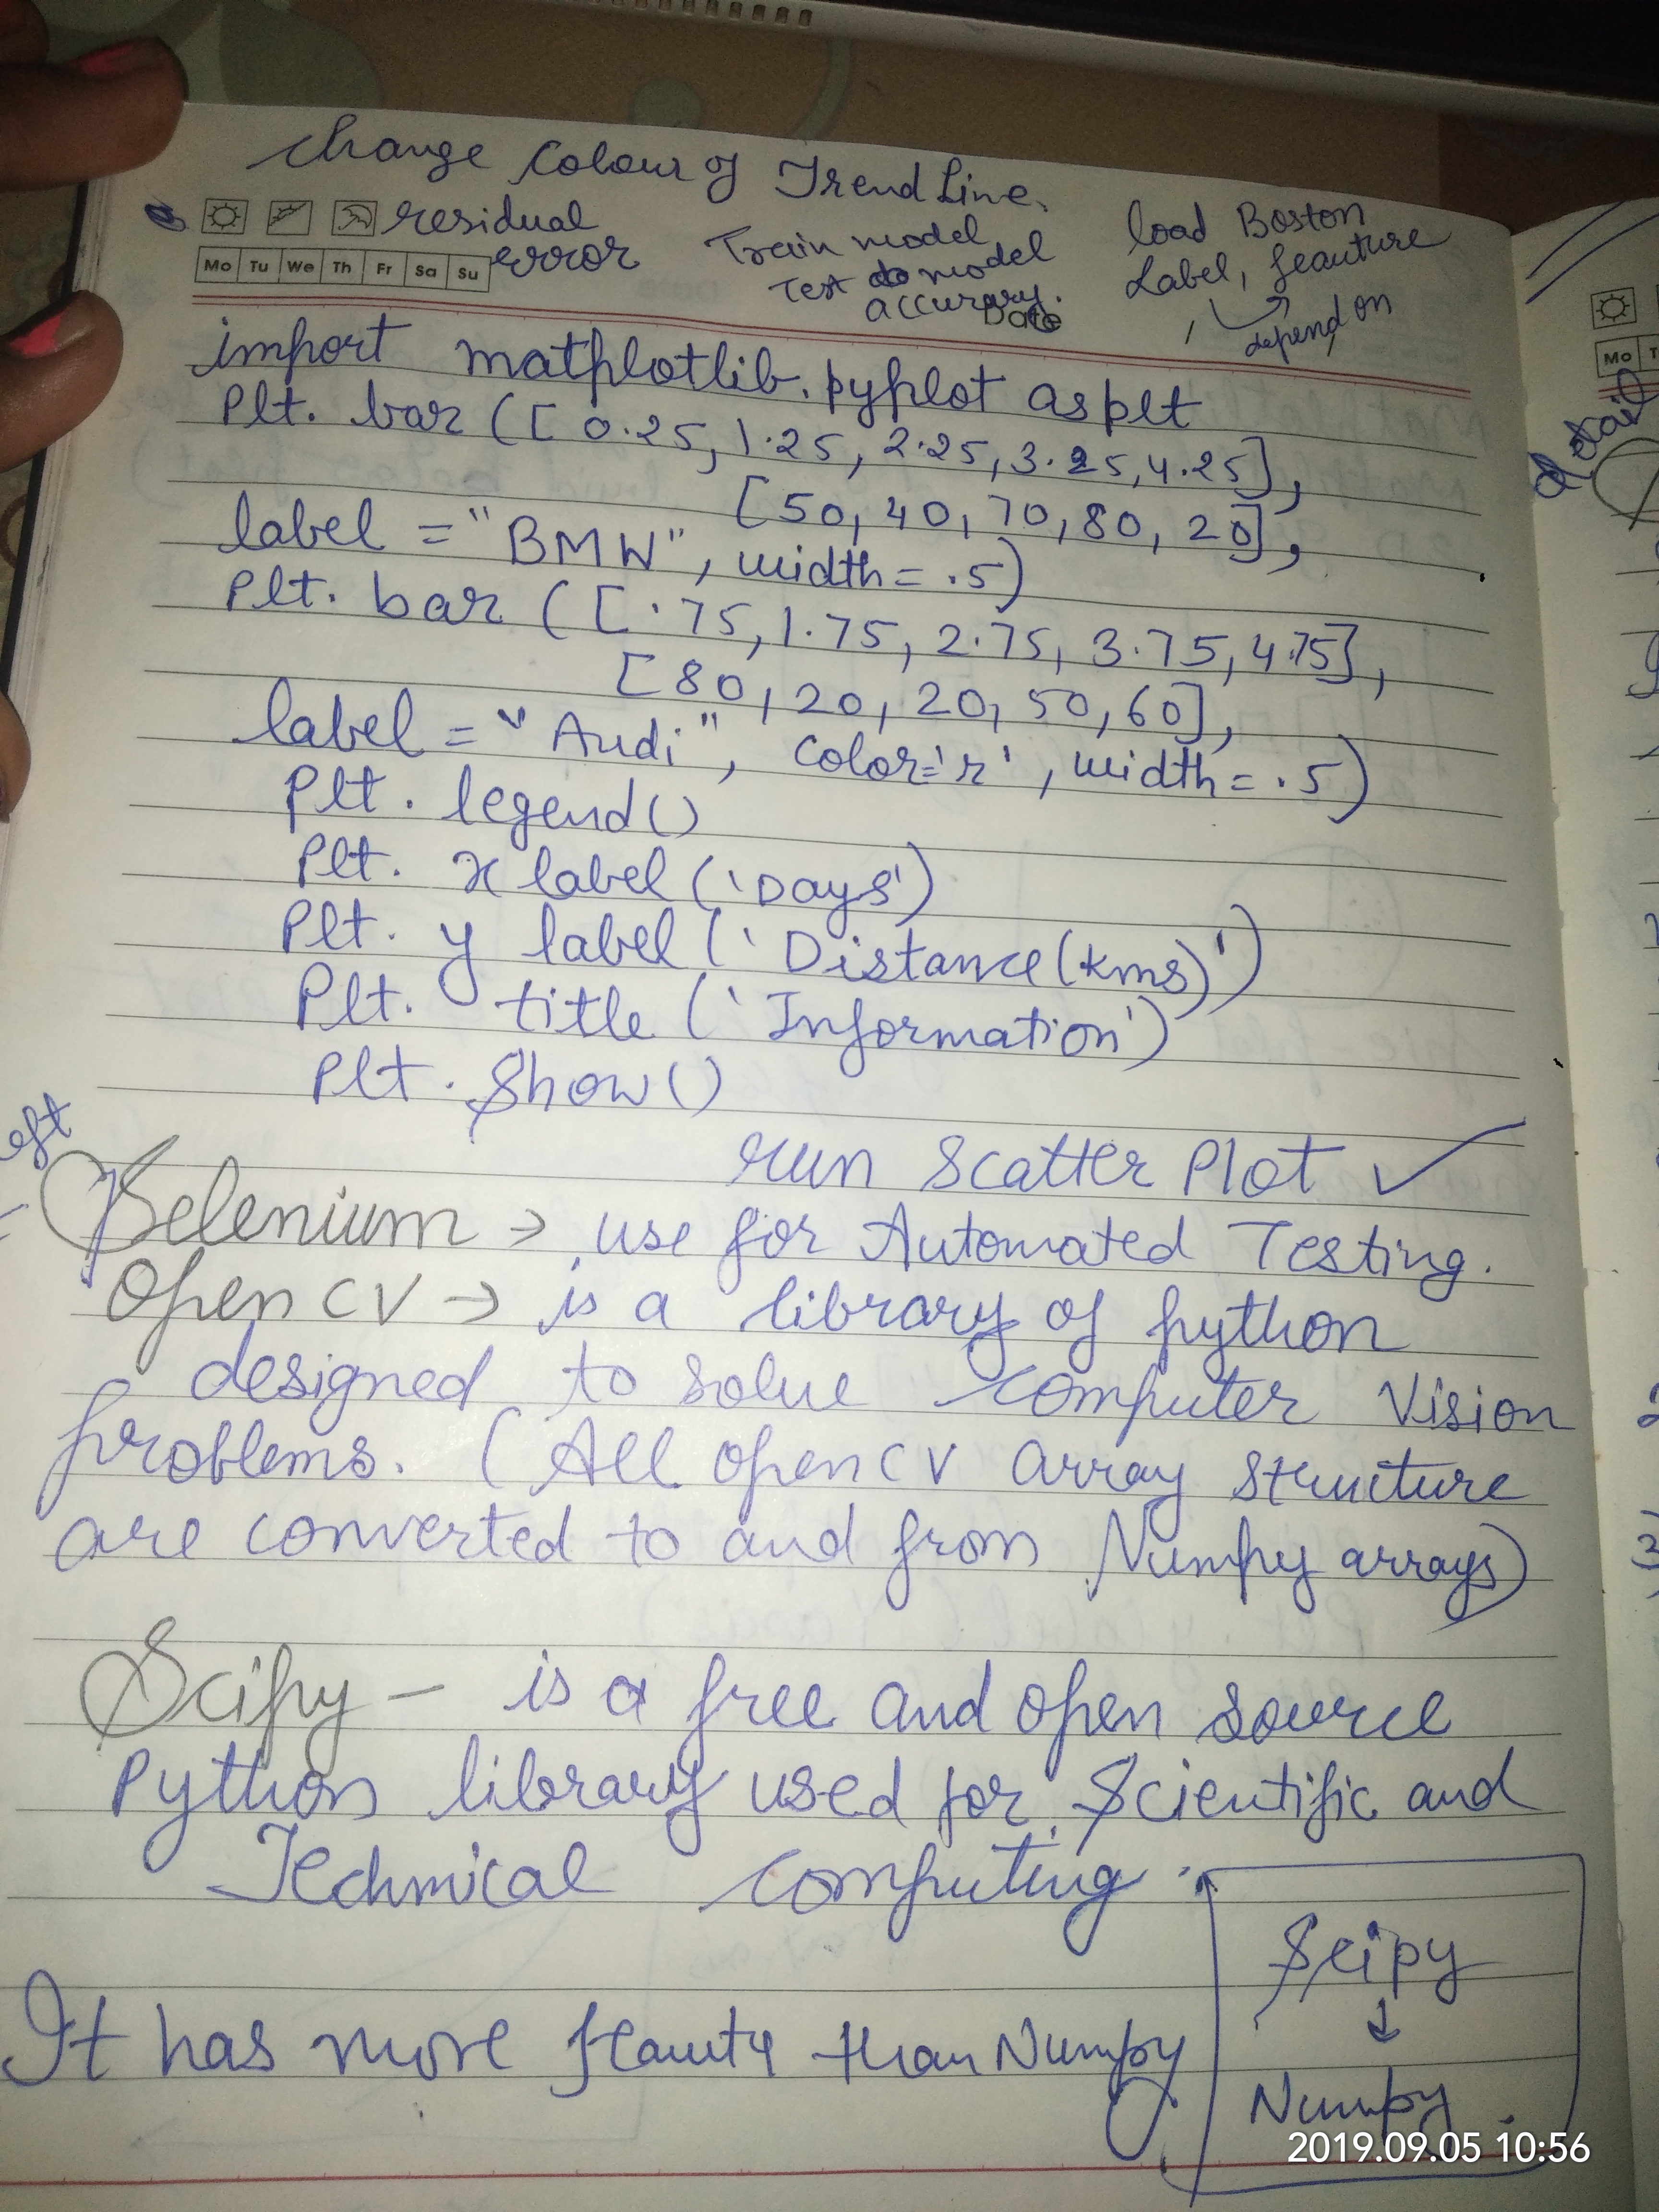 Change Colour of Trend Line.
residual
error
Train model
Test do model
accuracy.
load Boston
Label, feauture
depend on
Mo Tu We Th Fr Sa Su
Date
import matplotlib.pyplot as plt
Plt. bar ([ 0.25, 1.25, 2.25, 3.25, 4.25],
[50, 40, 70, 80, 20],
label = "BMW", width = .5)
Plt. bar ([ .75, 1.75, 2.75, 3.75, 4.75],
[80, 20, 20, 50, 60],
label = "Audi", color='r', width = .5)
Plt. legend()
Plt. x label ('Days')
Plt. y label ('Distance(kms)')
Plt. title ('Information')
Plt. Show()
run Scatter Plot ✓
Selenium → use for Automated Testing.
Open CV → is a library of python
designed to solve computer Vision
problems. (All open CV array structure
are converted to and from Numpy arrays)
Scipy — is a free and open source
Python library used for Scientific and
Technical computing.
Scipy
↓
Numpy
It has more than Numpy
Mo
detail
2019.09.05 10:56